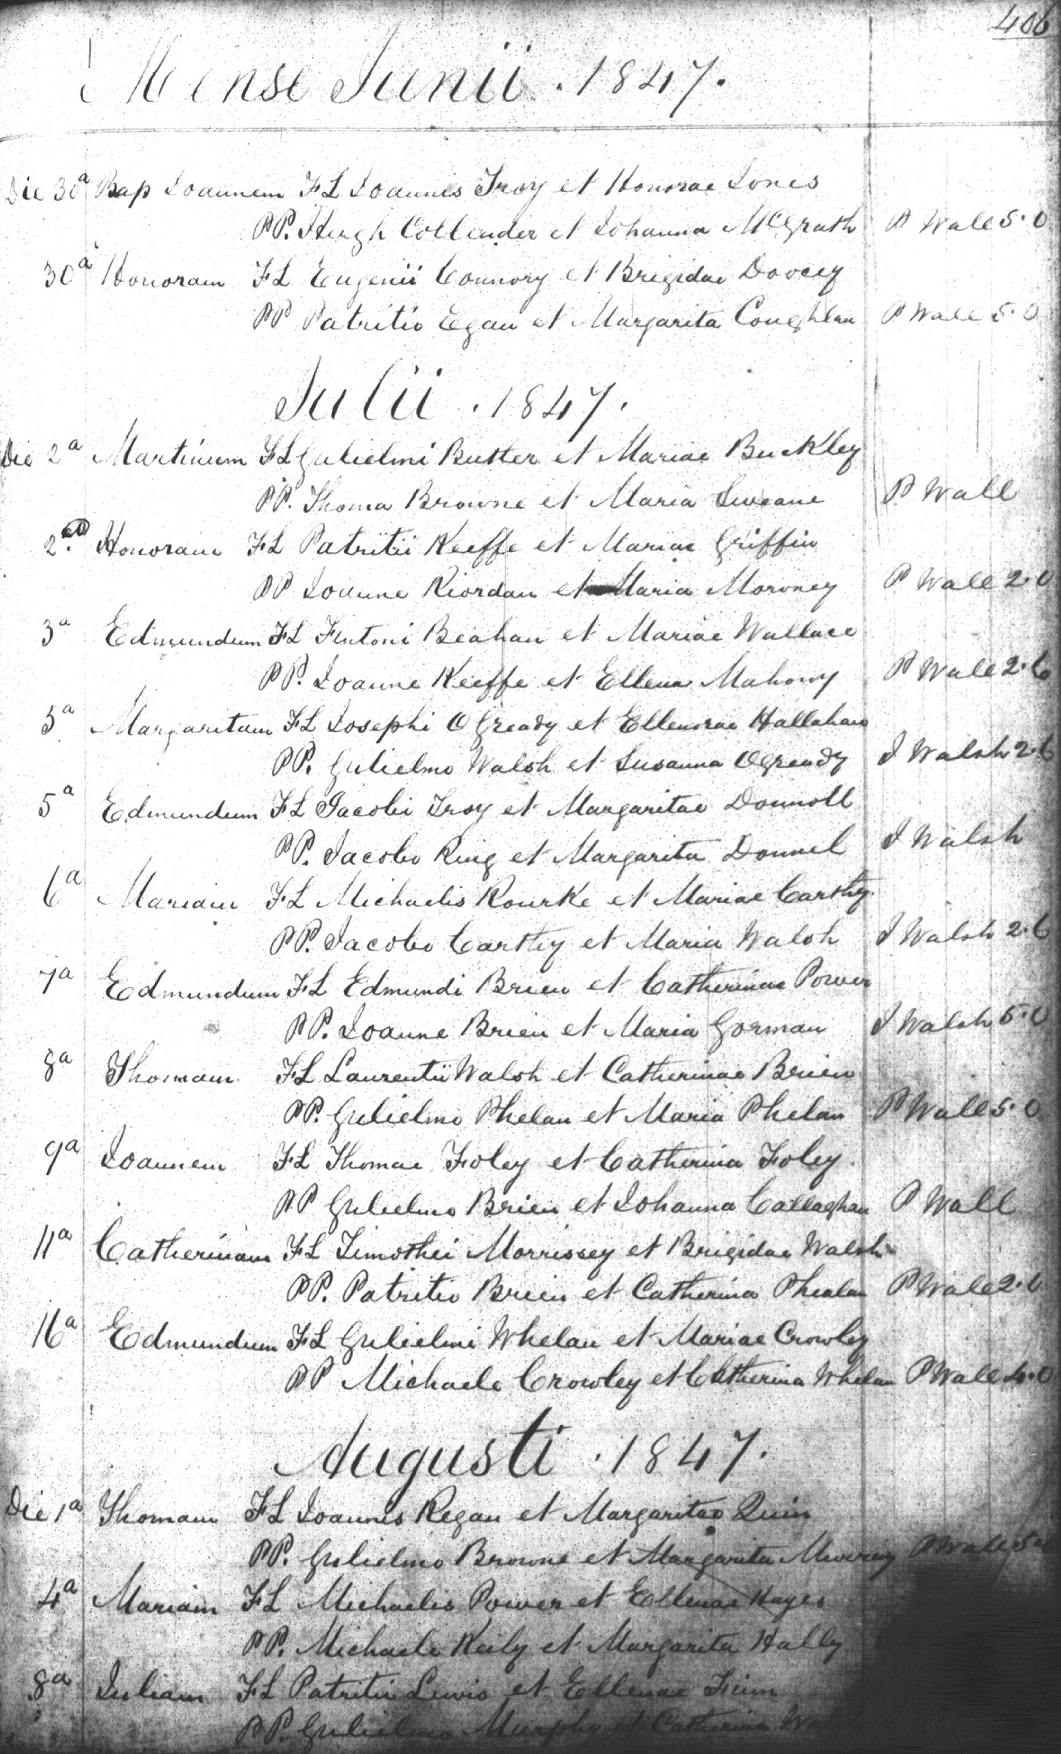 406
Mense Junii . 1847.
Die 30a Bap Joannem FL Joannes Troy et Honorae Jones
PP. Hugh Collender et Johanna McGrath P Wall 5.0
30a Honoram FL Eugenii Connory et Brigidae Doocey
PP Patritio Egan et Margarita Coughlan P Wall 5.0
Julii . 1847.
Die 2a Martinum FL Gulielmi Butler et Mariae Buckley
PP. Thoma Browne et Maria Sweane P Wall
2. Honoram FL Patritii Keeffe et Mariae Griffin
PP Joanne Riordan et Maria Moroney P Wall 2.0
3a Edmundum FL Fentoni Beahan et Mariae Wallace
PP. Joanne Keeffe et Ellena Mahony P Wall 2.6
5a Margaritam FL Josephi OGready et Ellenorae Hallahan
PP. Gulielmo Walsh et Susanna OGready J Walsh 2.6
5a Edmundum FL Jacobi Troy et Margaritae Donnoll
PP. Jacobo Ring et Margarita Donnel J Walsh
6a Mariam FL Michaelis Rourke et Mariae Carthy
PP. Jacobo Carthy et Maria Walsh J Walsh 2.6
7a Edmundum FL Edmundi Brien et Catherinae Power
PP. Joanne Brien et Maria Gorman J Walsh 5.0
8a Thomam FL Laurentii Walsh et Catherinae Brien
PP. Gulielmo Phelan et Maria Phelan P Wall 5.0
9a Joannem FL Thomae Foley et Catherina Foley.
PP Gulielmo Brien et Johanna Callaghan P Wall
11a Catherinam FL Timothei Morrissey et Brigidae Walsh
PP. Patritio Brien et Catherina Phealan P Wall 2.6
16a Edmundum FL Gulielmi Whelan et Mariae Crowley
PP Michaele Crowley et Catherina Whelan P Wall 4.0
Augusti . 1847.
Die 1a Thomam FL Joannis Regan et Margaritae Quin
PP. Gulielmo Browne et Margarita Murray P Wall
4a Mariam FL Michaelis Power et Ellenae Hayes
PP. Michaele Keily et Margarita Hally
8a Juliam FL Patritii Lewis et Ellenae Finn
PP. Gulielmo Murphy et Catherina